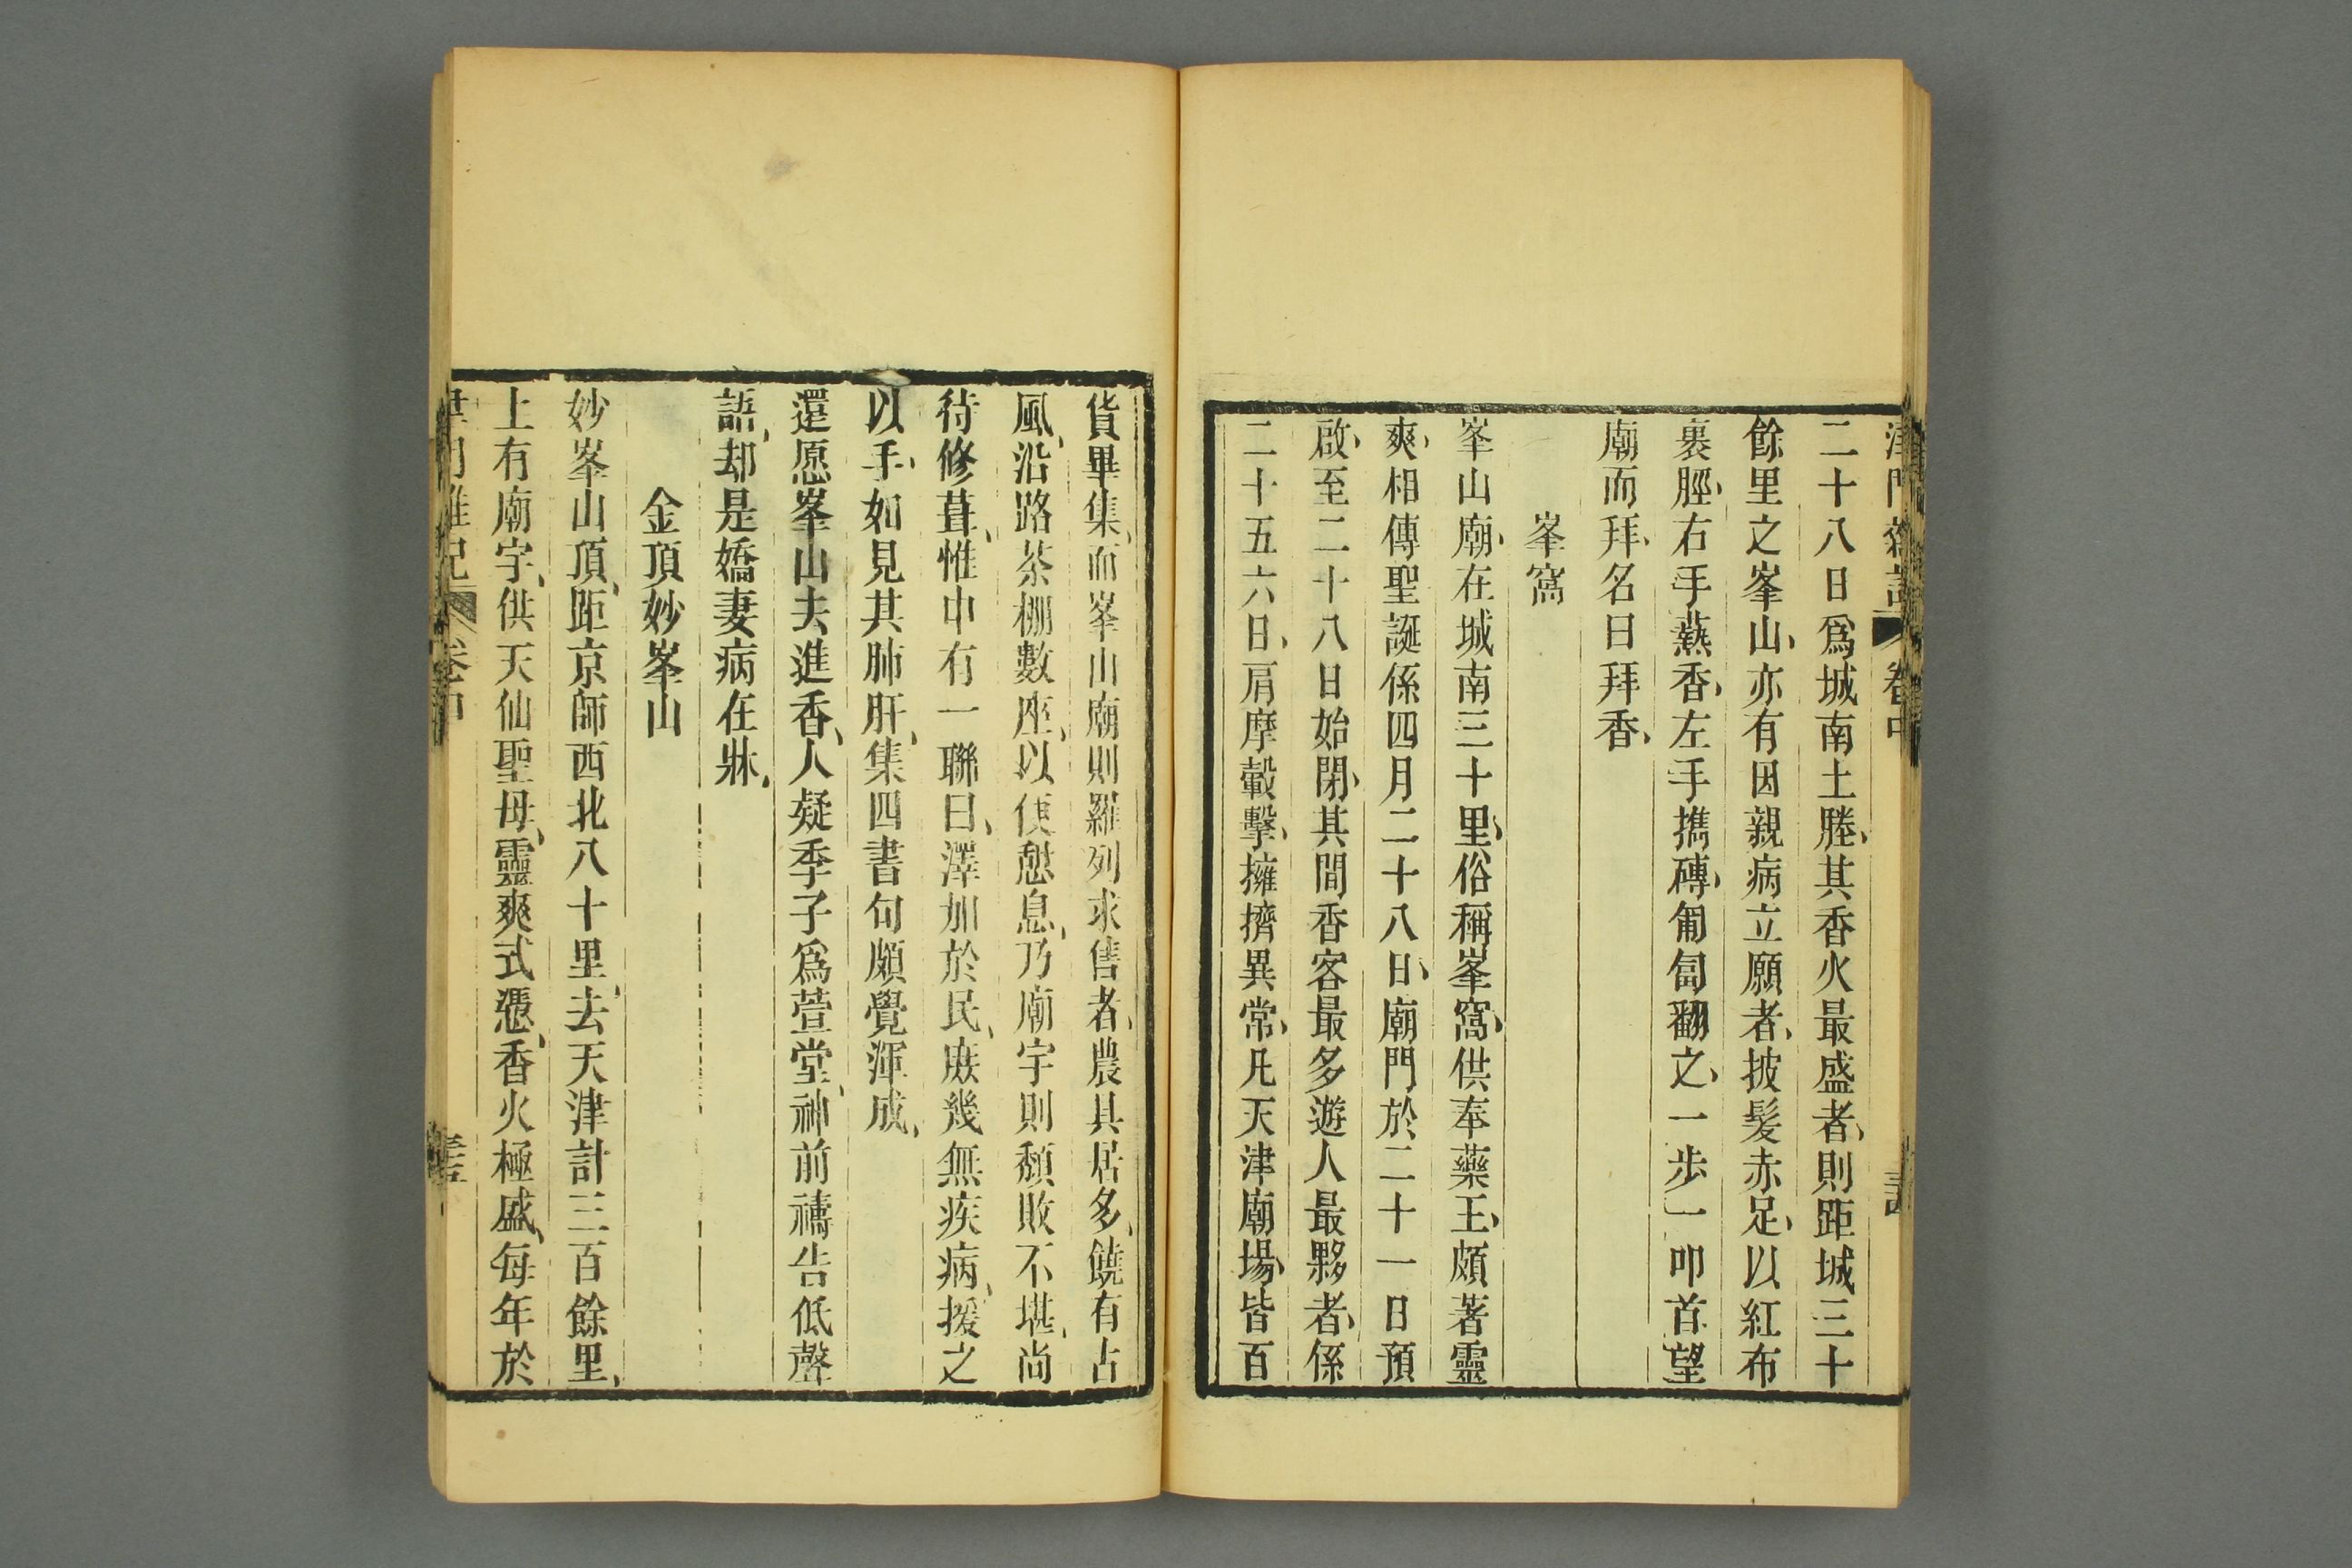 二十八日爲城南土塍、其香火最盛者、則距城三十
餘里之峯山、亦有因親病立願者、披髮赤足、以紅布
裹脛、右手爇香、左手擕磚、匍匐翻之、一步一叩首、望
廟而拜、名曰拜香、
峯窩
峯山廟、在城南三十里、俗稱峯窩、供奉藥王、頗著靈
爽、相傳聖誕係四月二十八日、廟門於二十一日預
啟、至二十八日始閉、其間香客最多、遊人最夥者、係
二十五六日、肩摩轂擊、擁擠異常、凡天津廟場、皆百
貨畢集、而峯山廟則羅列求售者、農具居多、饒有占
風、沿路茶棚數座、以便憇息、乃廟宇則頹敗不堪、尚
待修葺、惟中有一聯曰、澤加於民、庶幾無疾病、援之
以手、如見其肺肝、集四書句頗覺渾成、
還愿峯山去進香、人疑季子爲萱堂、神前禱告低聲
語、却是嬌妻病在牀、
金頂妙峯山
妙峯山頂、距京師西北八十里、去天津計三百餘里、
上有廟宇、供天仙聖母、靈爽式憑、香火極盛、每年於